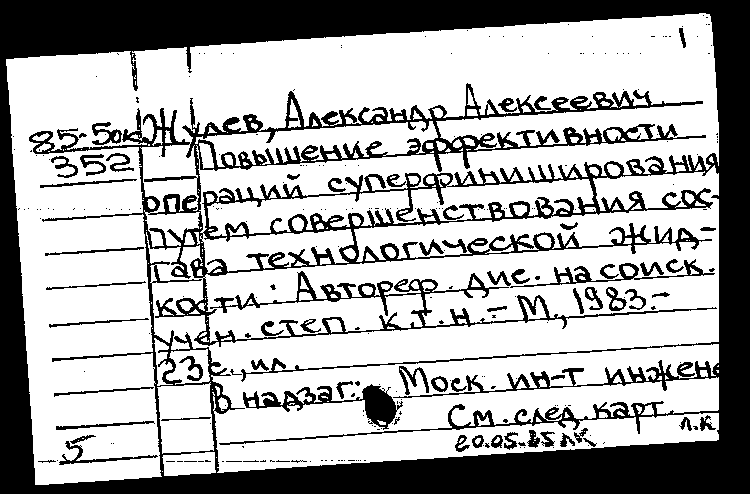 1
85-5ок Жулев, Александр Алексеевич
352 Повышение эффективности
операций суперфиниширования
путем совершенствования сос-
тава технологической жид-
кости: Автореф. дис. на соиск.
учен. степ. к.т.н. - М., 1983.-
23 с., ил.
В надзаг.: Моск. ин-т инжене
См. след. карт.
5 20.05.85 лк л.к